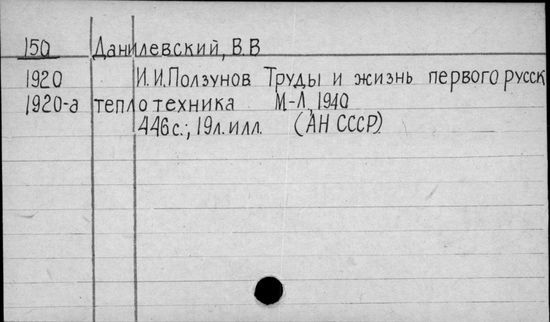 150 Данилевский, В.В
1920 И.И.Ползунов Труды и жизнь первого русск
1920-а теплотехника М-Л, 1940
446с.; 19л.илл. (АН СССР)